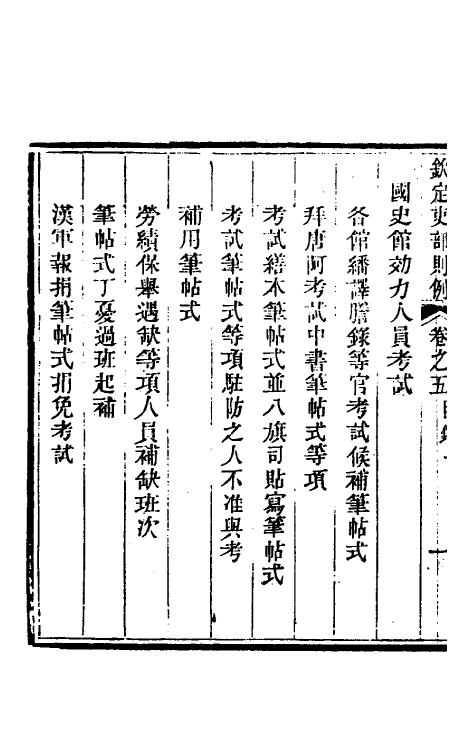 欽定吏部則例 卷之五目錄 一
國史館効力人員考試
各館繙譯謄錄等官考試候補筆帖式
拜唐阿考試中書筆帖式等項
考試繕本筆帖式並八旗司貼寫筆帖式
考試筆帖式等項駐防之人不准與考
補用筆帖式
勞績保舉遇缺等項人員補缺班次
筆帖式丁憂過班起補
漢軍報捐筆帖式捐免考試